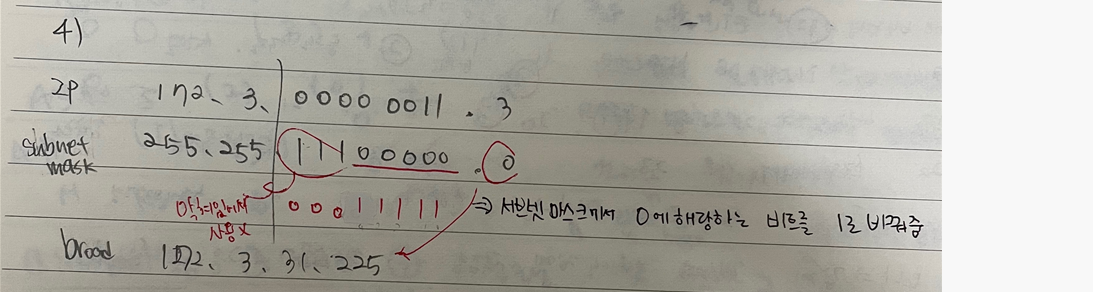 4)
IP 172. 3. 0000 0011 . 3
subnet mask 255.255 11100000 . 0
사용x 000 11111 ⇒ 서브넷 마스크에서 0에 해당하는 비트를 1로 바꿔줌
broad 172. 3. 31. 225